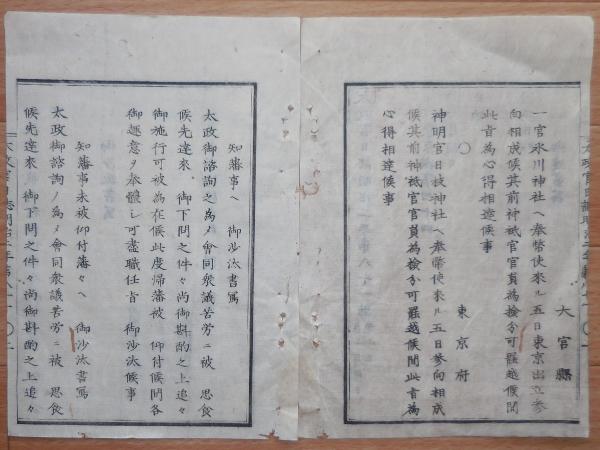 大宮縣
一官氷川神社ヘ奉幣使來ル五日東京出立參
向相成候其前神祇官官員為檢分可罷越候間
此旨為心得相達候事
〇　東京府
神明官日枝神社ヘ奉幣使來ル五日參向相成
候其前神祇官官員為檢分可罷越候間此旨為
心得相達候事
知藩事ヘ　御沙汰書寫
太政御諮詢之為メ會同衆議苦労ニ被　思食
候先達來　御下問之件々尚御斟酌之上追々
御施行可被為在候此度歸藩被　仰付候間各
御趣意ヲ奉體シ可盡職任旨　御沙汰候事
知藩事未被仰付藩々ヘ　御沙汰書寫
太政御諮詢ノ為メ會同衆議苦労ニ被　思食
候先達來　御下問之件々尚御斟酌之上追々